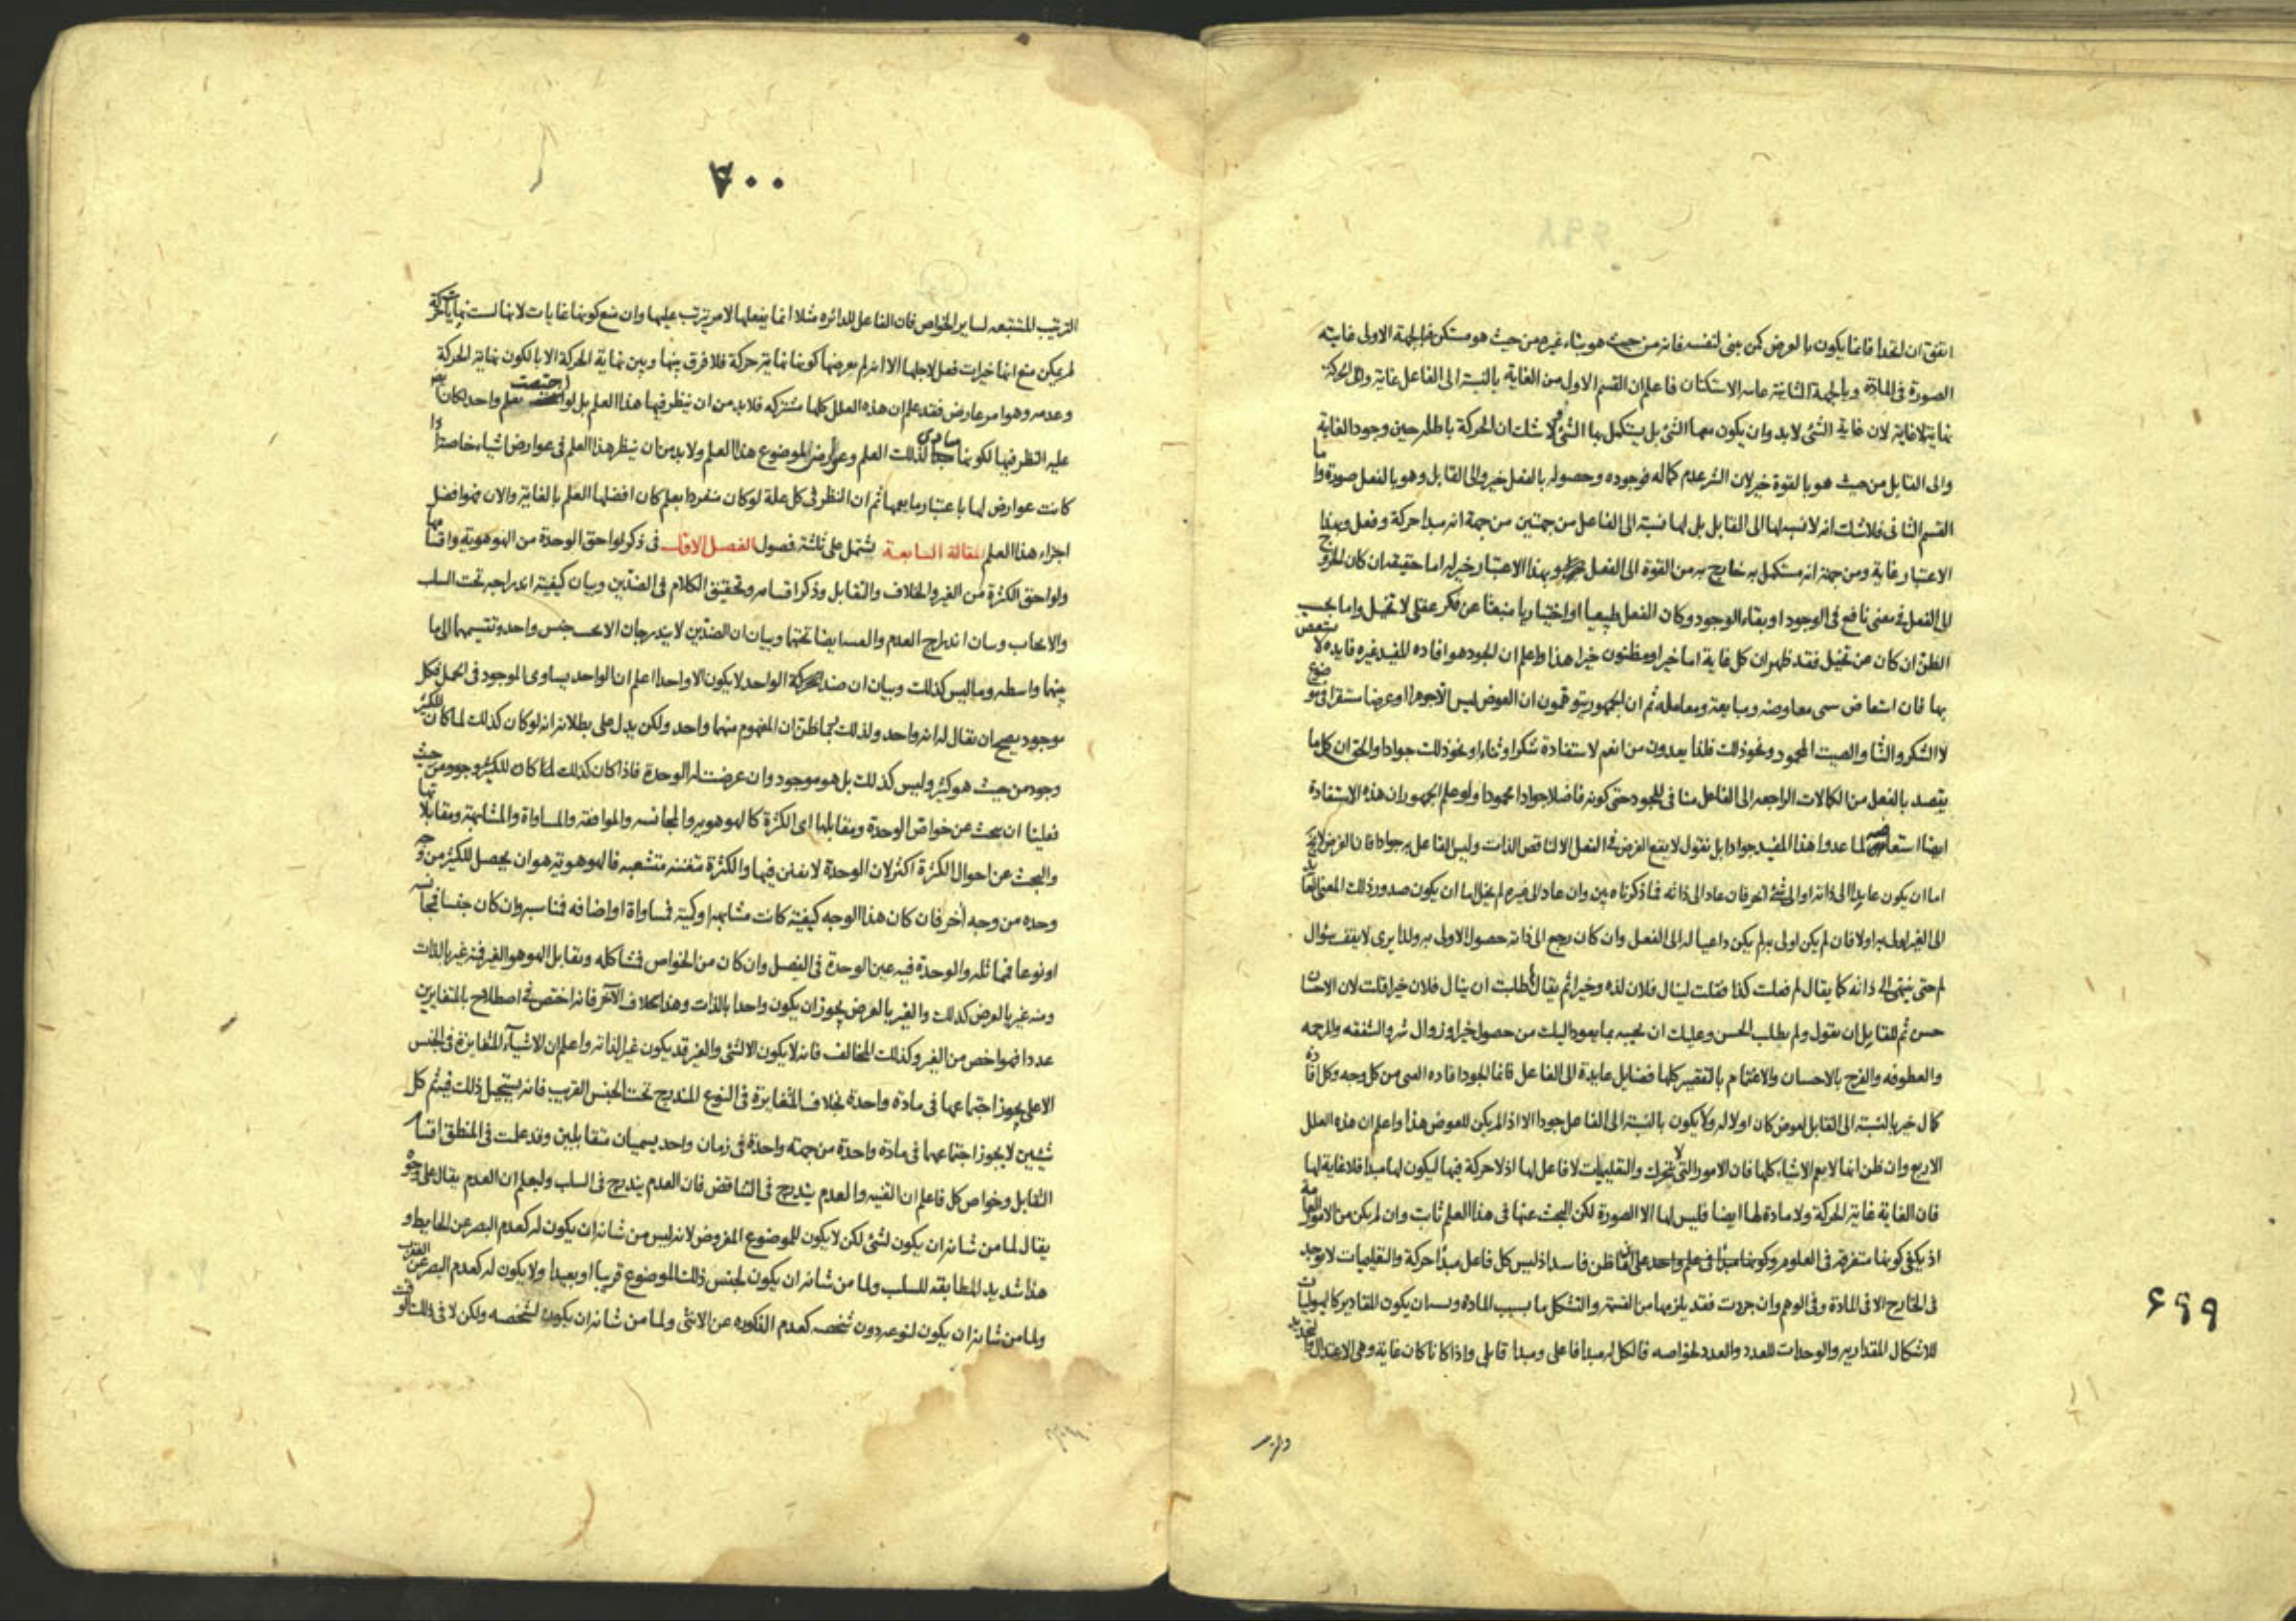 ۶۹۹
اتفق ان اتحدا فانما يكون بالعرض كمن يبنى لنفسه فانه من حيث هو بناء غيره من حيث هو مستكن فالجهة الاولى غايته
الصورة فى المادة وبالجهة الثانية غايته الاستكنان فاعلم ان القسم الاول من الغاية بالنسبة الى الفاعل غاية والى الحركة
نهاية لا غاية لان غاية الشئ لابد وان يكون معها الشئ بل يستكمل بها الشئ ولا شك ان الحركة باطلة حين وجود الغاية
والى القابل من حيث هو بالقوة خير لان الشر عدم كماله فوجوده وحصوله بالفعل خير والى القابل وهو بالفعل صورة واما
القسم الثانى فلا شك انه لا نسبة لها الى القابل بل لها نسبة الى الفاعل من جهتين من جهة انه مبدا حركة وفعل وبهذا
الاعتبار غاية ومن جهة انه مستكمل به خارج به من القوة الى الفعل وبهذا الاعتبار خير له اما حقيقة ان كان الخروج
الى الفعل فى معنى نافع فى الوجود او بقاء الوجود وكان الفعل طبيعيا او اختياريا منبعثا عن فكر عقلى لا تخيل واما بحسب
الظن ان كان عن تخيل فقد ظهر ان كل غاية اما خير او مظنون خيرا هذا واعلم ان الجود هو افاده المفيد غيره فايده لا يستعيض
بها فان استعاض سمى معاوضه ومبايعة ومعاملة ثم ان الجمهور يتوهمون ان العوض ليس الا جوهرا او عرضا مستقرا فى موضوع
لا الشكر والثنا والصيت المحمود ونحو ذلك فلذا يعدون من انعم لاستفادة شكر او ثناء او نحو ذلك جوادا والحق ان كل ما
يقصد بالفعل من الكمالات الراجعه الى الفاعل منافى للجود حتى كونه فاضلا جوادا محمودا ولو علم الجمهور ان هذه الاستفادة
ايضا استعاضه لما عدوا هذا المفيد جوادا بل نقول لا يقع الغرض فى الفعل الا لناقص الذات وليس الفاعل به جوادا فان الغرض لابد
اما ان يكون عايدا الى ذاته او الى شئ اخر فان عاد الى ذاته فما ذكرناه بين وان عاد الى غيره لم يخل اما ان يكون صدور ذلك المعنى
الى الغير اولى به اولا فان لم يكن اولى به لم يكن داعيا له الى الفعل وان كان رجع الى ذاته حصول الاولى به ولذا يرى لا يقف سؤال
لم حتى ينتهى الى ذاته كما يقال لم فعلت كذا فقلت لينال فلان لذه وخيرا ثم يقال لم طلبت ان ينال فلان خيرا قلت لان الاحسان
حسن ثم للقايل ان يقول ولم يطلب الحسن وعليك ان تجيبه بما يعود اليك من حصول خير او زوال شر والشفقه والرحمه
والعطوفه والفرح بالاحسان والاغتمام بالتقصير كلها فضايل عايدة الى الفاعل فانما الجود افاده المعنى من كل وجه وكل افاده
كمال خير بالنسبة الى القابل لعوض كان او لا له ولا يكون بالنسبة الى الفاعل جودا الا اذا لم يكن للعوض هذا واعلم ان هذه العلل
الاربع وان ظن انها لا يعم الاشياء كلها فان الامور التى لا تتحرك والتعليميات لا فاعل لها اذ لا حركة فيها ليكون لها مبدا فلا غاية لها
فان الغاية غاية الحركة ولا مادة لها ايضا فليس لها الا الصورة لكن البحث عنها فى هذا العلم ثابت وان لم يكن من الامور العامة
اذ يكفى كونها متفرقه فى العلوم وكونها مبدأ فى علم واحد على ان هذا ظن فاسد اذ ليس كل فاعل مبدأ حركة والتعليميات لا توجد
فى الخارج الا فى المادة وفى الوهم وان جردت فقد يلزمها من القسمة والتشكل ما بسبب المادة وسان يكون المقادير كالهيوليات
للاشكال المقداريه والوحدات للعدد والعدد لخواصه فالكل له مبدا فاعلى ومبدا قابلى واذا كانا كان غاية وهى الاعتدال والتحديد
۷۰۰
الترتيب المستتبعه لساير الخواص فان الفاعل للدائره مثلا انما يفعلها لامر يترتب عليها وان منع كونها غايات لانها ليست نهايات حركة
لم يمكن منع انها خيرات فعل لاجلها الا انه لم يعرضها كونها نهاية حركة فلا فرق بينها وبين نهاية الحركة الا بالكون نهاية الحركة
وعدمه وهو امر عارض فقد علم ان هذه العلل كلها مشتركه فلابد من ان ينظر فيها هذا العلم بل لو اختصت بعلم واحد لكان
عليه النظر فيها لكونها مبادى لذلك العلم وعوارض لموضوع هذا العلم ولابد من ان ينظر هذا العلم فى عوارض اشياء خاصة اذا
كانت عوارض لها باعتبار ما يعمها ثم ان النظر فى كل علة لو كان منفردا بعلم كان افضلها العلم بالغاية والان فهو افضل
اجزاء هذا العلم المقالة السابعة يشتمل على ثلثة فصول الفصل الاول فى ذكر لواحق الوحدة من الهوهوية واقسامها
ولواحق الكثرة من الغير والخلاف والتقابل وذكر اقسامه وتحقيق الكلام فى الضدين وبيان كيفية اندراجه تحت السلب
والايجاب وبيان اندراج العدم والعمى ايضا تحتها وبيان ان الضدين لا يندرجان الا تحت جنس واحد وتقسيمها الى ما
بينها واسطه وما ليس كذلك وبيان ان ضد الواحد لا يكون الا واحدا اعلم ان الواحد يساوى الموجود فى الحمل فكل
موجود يصح ان يقال له انه واحد ولذلك ربما ظن ان المفهوم منهما واحد ولكن يدل على بطلانه انه لو كان كذلك لما كان للكثير
وجود من حيث هو كثير وليس كذلك بل هو موجود وان عرضت له الوحدة فاذا كان كذلك لما كان للكثير وجود من حيث
فعلينا ان نبحث عن خواص الوحدة ومقابلها اى الكثرة كالهوهوية والمجانسه والموافقه والمساواة والمشابهة ومقابلاتها
والبحث عن احوال الكثرة اكثر لان الوحدة لا تفنن فيها والكثرة متفننه متشعبه فالهوهوية هو ان يحصل للكثير من وجه
وحده من وجه آخر فان كان هذا الوجه كيفية كانت مشابهه او كمية فمساواة او اضافه فمناسبه وان كان جنسا فمجانسه
او نوعا فمماثله والوحدة فيه عين الوحدة فى الفصل وان كان من الخواص فمشاكله ومقابل الهوهو الغير فمنه غير بالذات
ومنه غير بالعرض كذلك والغير بالعرض يجوز ان يكون واحدا بالذات وهذا بخلاف الآخر فانه اختص فى اصطلاح بالمتغايرين
عددا فهو اخص من الغير وكذلك المخالف فانه لا يكون الا لشئ والغير قد يكون غيرا لذاته واعلم ان الاشيآء المتغايرة فى الجنس
الاعلى يجوز اجتماعها فى مادة واحدة بخلاف المتغايرة فى النوع المندرج تحت الجنس القريب فانه يستحيل ذلك فيه ثم كل
شيئين لا يجوز اجتماعهما فى مادة واحدة من جهة واحدة فى زمان واحد يسميان متقابلين وقد علمت فى المنطق اقسام
التقابل وخواص كل فاعلم ان القنيه والعدم يندرج فى التناقض فان العدم يندرج فى السلب وليعلم ان العدم يقال على وجوه
يقال لما من شانه ان يكون لشئ لكن لا يكون للموضوع المفروض لانه ليس من شانه ان يكون له كعدم البصر عن الحايط و
هذا شديد المطابقه للسلب ولما من شانه ان يكون لجنس ذلك الموضوع قريبا او بعيدا ولا يكون له كعدم البصر عن العقرب
ولما من شانه ان يكون لنوعه دون شخصه كعدم الذكوره عن الانثى ولما من شانه ان يكون لشخصه ولكن لا فى ذلك الوقت